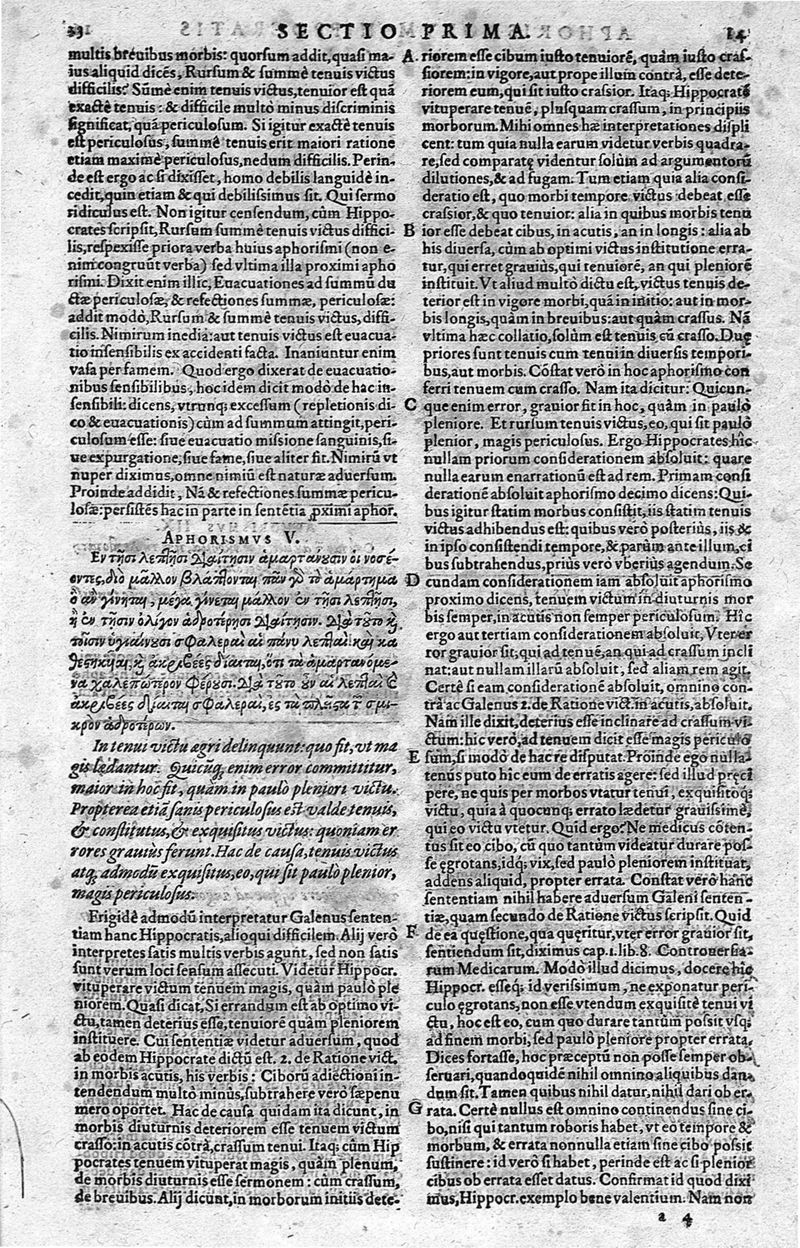 231 SECTIO PRIMA. 14
multis breuibus morbis: quorsum addit, quasi ma-
ius aliquid dicēs, Rursum & summè tenuis victus
difficilis? Sūmè enim tenuis victus, tenuior est quā
exactè tenuis: & difficile multò minus discriminis
significat, quā periculosum. Si igitur exactè tenuis
est periculosus, summè tenuis erit maiori ratione
etiam maximè periculosus, nedum difficilis. Perin-
de est ergo ac si dixisset, homo debilis languidè in-
cedit, quin etiam & qui debilissimus sit. Qui sermo
ridiculus est. Non igitur censendum, cùm Hippo-
crates scripsit, Rursum summè tenuis victus diffici-
lis, respexisse priora verba huius aphorismi (non e-
nim congruūt verba) sed vltima illa proximi apho
rismi. Dixit enim illic, Euacuationes ad summū du
ctæ periculosæ, & refectiones summæ, periculosæ:
addit modò, Rursum & summè tenuis victus, diffi-
cilis. Nimirum inedia: aut tenuis victus est euacua-
tio insensibilis ex accidenti facta. Inaniuntur enim
vasa per famem. Quod ergo dixerat de euacuatio-
nibus sensibilibus, hoc idem dicit modò de hac in-
sensibili: dicens, vtrunq; excessum (repletionis di-
co & euacuationis) cùm ad summum attingit, peri-
culosum esse: siue euacuatio missione sanguinis, si-
ue expurgatione, siue fame, siue aliter fit. Nimirū vt
nuper diximus, omne nimiū est naturæ aduersum.
Proinde addidit, Nā & refectiones summæ pericu-
losæ: persistēs hac in parte in sentētia ꝓximi aphor.
APHORISMVS V.
Ἐν τῇσι λεπτῇσι διαίτῃσιν ἁμαρτάνουσιν οἱ νοσέ-
οντες, διὸ μᾶλλον βλάπτονται, πᾶν γὸ τὸ ἁμάρτημα
ὃ ἂν γίνηται, μέγα γίνεται μᾶλλον ἐν τῇσι λεπτῇσι,
ἢ ἐν τῇσιν ὀλίγον ἁδροτέρῃσι διαίτῃσιν. διὰ τοῦτο κ̀
τοῖσιν ὑγιαίνουσι σφαλεραὶ αἱ πάνυ λεπταὶ καὶ κα
θεστηκυῖαι, κ̀ ἀκριβέες δίαιται, ὅτι τὰ ἁμαρτανόμε-
να χαλεπώτερον φέρουσι. διὰ τοῦτο οὖν αἱ λεπταὶ &
ἀκριβέες δίαιται σφαλεραὶ, ἐς τὰ πλεῖστα τ̃ σμι-
κρὸν ἁδροτέρων.
In tenui victu ægri delinquunt: quo fit, vt ma
gis lædantur. Quicūq; enim error committitur,
maior in hoc fit, quàm in paulò pleniori victu.
Propterea etiā sanis periculosus est valde tenuis,
& constitutus, & exquisitus victus: quoniam er
rores grauiùs ferunt. Hac de causa, tenuis victus
atq; admodū exquisitus, eo, qui sit paulò plenior,
magis periculosus.
Frigidè admodū interpretatur Galenus senten-
tiam hanc Hippocratis, alioqui difficilem. Alij verò
interpretes satis multis verbis agunt, sed non satis
sunt verum loci sensum assecuti. Videtur Hippocr.
vituperare victum tenuem magis, quàm paulò ple
niorem. Quasi dicat, Si errandum est ab optimo vi-
ctu, tamen deterius esse, tenuiorē quàm pleniorem
instituere. Cui sententiæ videtur aduersum, quod
ab eodem Hippocrate dictū est. 2. de Ratione vict.
in morbis acutis, his verbis: Ciborū adiectioni in-
tendendum multò minus, subtrahere verò sæpenu
mero oportet. Hac de causa quidam ita dicunt, in
morbis diuturnis deteriorem esse tenuem victum
crasso: in acutis cōtrà, crassum tenui. Itaq; cùm Hip
pocrates tenuem vituperat magis, quàm plenum,
de morbis diuturnis esse sermonem: cùm crassum,
de breuibus. Alij dicunt, in morborum initiis dete-
A. riorem esse cibum iusto tenuiorē, quàm iusto cras-
siorem: in vigore, aut prope illum contrà, esse dete-
riorem eum, qui sit iusto crassior. Itaq; Hippocratē
vituperare tenuē, plusquam crassum, in principiis
morborum. Mihi omnes hæ interpretationes displi
cent: tum quia nulla earum videtur verbis quadra-
re, sed comparatę videntur solùm ad argumentorū
dilutiones, & ad fugam. Tum etiam quia alia consi-
deratio est, quo morbi tempore victus debeat esse
crassior, & quo tenuior: alia in quibus morbis tenu
B ior esse debeat cibus, in acutis, an in longis: alia ab
his diuersa, cùm ab optimi victus institutione erra-
tur, qui erret grauiùs, qui tenuiorē, an qui pleniorē
instituit. Vt aliud multò dictu est, victus tenuis de-
terior est in vigore morbi, quā in initio: aut in mor-
bis longis, quàm in breuibus: aut quàm crassus. Nā
vltima hæc collatio, solùm est tenuis cū crasso. Duę
priores sunt tenuis cum tenui in diuersis tempori-
bus, aut morbis. Cōstat verò in hoc aphorismo con
ferri tenuem cum crasso. Nam ita dicitur: Quicun-
C que enim error, grauior fit in hoc, quàm in paulò
pleniore. Et rursum tenuis victus, eo, qui sit paulò
plenior, magis periculosus. Ergo Hippocrates hîc
nullam priorum considerationem absoluit: quare
nulla earum enarrationū est ad rem. Primam consi
derationē absoluit aphorismo decimo dicens: Qui-
bus igitur statim morbus consistit, iis statim tenuis
victus adhibendus est: quibus verò posterius, iis &
in ipso consistendi tempore, & parum ante illum, ci
bus subtrahendus, prius verò vberius agendum. Se
D cundam considerationem iam absoluit aphorismo
proximo dicens, tenuem victum in diuturnis mor
bis semper, in acutis non semper periculosum. Hîc
ergo aut tertiam considerationem absoluit, Vter er
ror grauior sit, qui ad tenuē, an qui ad crassum incli
nat: aut nullam illarū absoluit, sed aliam rem agit.
Certè si eam considerationē absoluit, omnino con-
trà ac Galenus 2. de Ratione vict. in acutis, absoluit.
Nam ille dixit, deterius esse inclinare ad crassum vi-
ctum: hîc verò, ad tenuem dicit esse magis periculo
E sum, si modo de hac re disputat. Proinde ego nulla-
tenus puto hîc eum de erratis agere: sed illud pręci
pere, ne quis per morbos vtatur tenui, exquisitoq;
victu, quia à quocunq; errato lædetur grauissimè,
qui eo victu vtetur. Quid ergo? Ne medicus cōten-
tus sit eo cibo, cū quo tantùm videatur durare pos-
se ęgrotans, idq; vix, sed paulò pleniorem instituat,
addens aliquid, propter errata. Constat verò hanc
sententiam nihil habere aduersum Galeni senten-
tiæ, quam secundo de Ratione victus scripsit. Quid
F de ea quęstione, qua quęritur, vter error grauior sit,
sentiendum sit, diximus cap. 1. lib. 8. Controuersia-
rum Medicarum. Modò illud dicimus, docere hîc
Hippocr. esseq; id verissimum, ne exponatur peri-
culo ęgrotans, non esse vtendum exquisitè tenui vi
ctu, hoc est eo, cum quo durare tantùm possit vsq;
ad finem morbi, sed paulò pleniore propter errata.
Dices fortasse, hoc præceptū non posse semper ob-
seruari, quandoquidē nihil omnino aliquibus dan-
dum sit. Tamen quibus nihil datur, nihil dari ob er-
G rata. Certè nullus est omnino continendus sine ci-
bo, nisi qui tantum roboris habet, vt eo tempore &
morbum, & errata nonnulla etiam sine cibo possit
sustinere: id verò si habet, perinde est ac si plenior
cibus ob errata esset datus. Confirmat id quod dixi
mus, Hippocr. exemplo bene valentium. Nam non
a 4